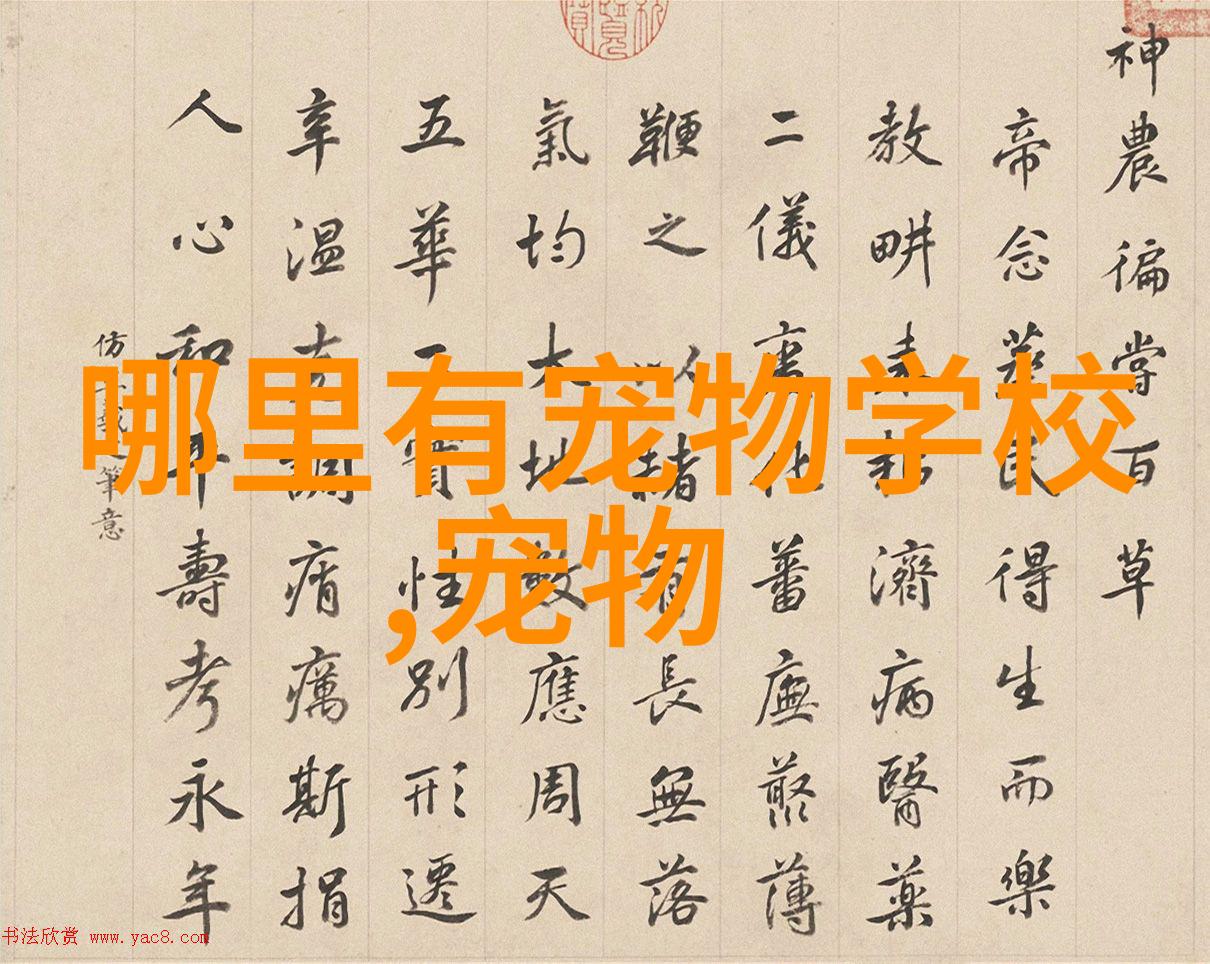 神農徧嘗百草
帝念蒸民得生而樂
教畊表
濟病醫藥
二儀
蕃廡叢薄
鞭之
緒
長無落
氣均大地
應周天
五華
實性別形遷
辛温
調瘠癘斯捐
人心和平壽考永年
仿
筆意
哪里有宠物学校
,宠物
书法欣赏 www.yac8.com